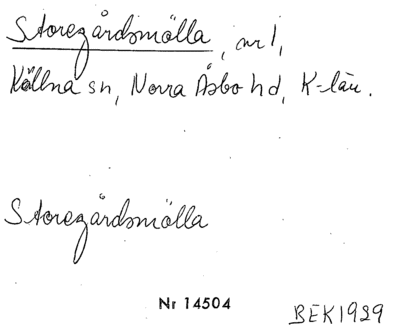 Storegårdsmölla, nr 1,
Källna sn, Norra Åsbo hd, K-län.
Storegårdsmölla
Nr 14504
BEK1929